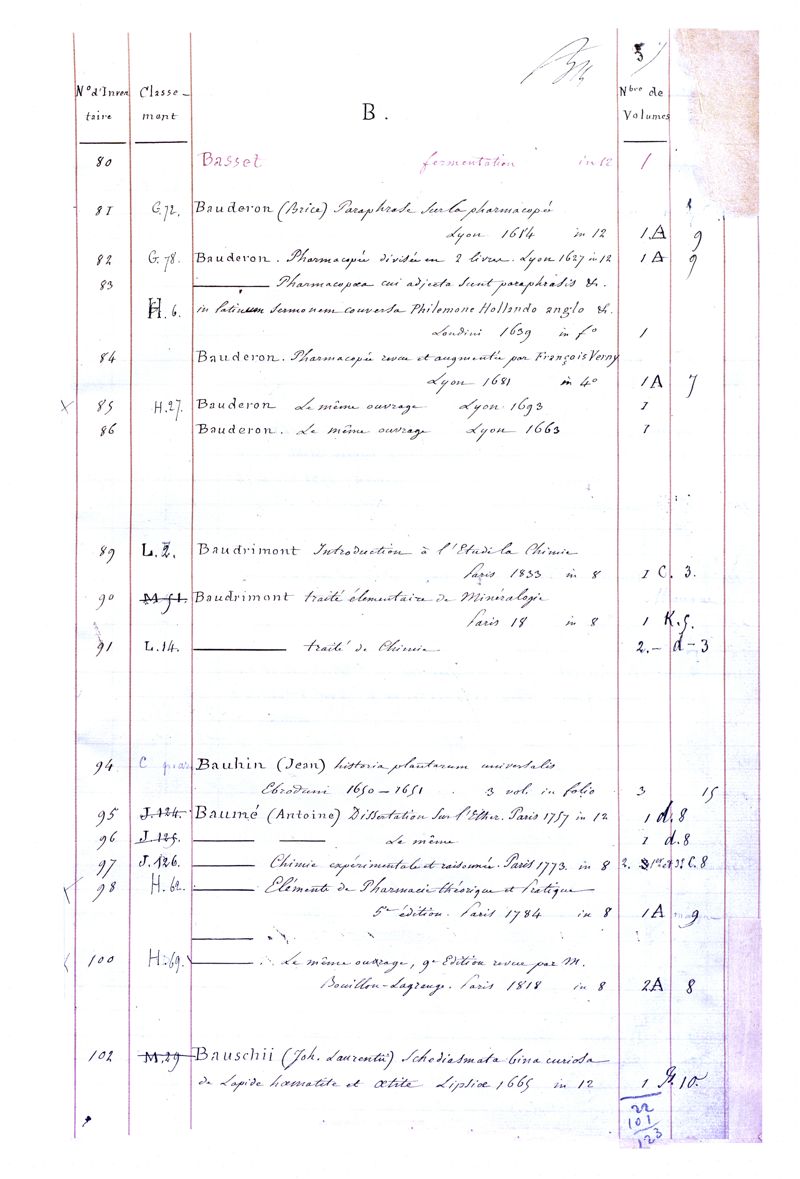 5)
N° d'Inven Classe- B. Nbre de
taire ment Volumes
80 Basset fermentation in 12 1
81 G.72. Bauderon (Brice) Paraphrase sur la pharmacopée
Lyon 1614 in 12 1 A 9
82 G.78. Bauderon. Pharmacopée divisée en 2 livres. Lyon 1627 in 12 1 A 9
83 Pharmacopœa cui adjecta sunt paraphrasis &.
H.6. in latinum sermonem conversa Philemone Hollando anglo &.
Londini 1639 in f° 1
84 Bauderon. Pharmacopée revue et augmentée par François Verny
Lyon 1681 in 4° 1 A 7
X 85 H.27. Bauderon Le même ouvrage Lyon 1693 1
86 Bauderon. Le même ouvrage Lyon 1663 1
89 L.2. Baudrimont Introduction à l'Etude la Chimie
Paris 1833 in 8 1 C. 3.
90 M 51. Baudrimont traité élementaire de Minéralogie
Paris 18 in 8 1 K.5.
91 L.14. traité de Chimie 2.- d-3
94 C Bauhin (Jean) historia plantarum universalis
Ebroduni 1650-1651 . 3 vol. in folio 3 15
95 J.124. Baumé (Antoine) Dissertation sur l'Ether. Paris 1757 in 12 1 d.8
96 J.125. Le même 1 d.8
97 J.126. Chimie expérimentale et raisonnée. Paris 1773. in 8 2. 1er et 3e C.8
98 H.62. Eléments de Pharmacie théorique et Pratique
5e édition. Paris 1784 in 8 1 A 9
100 H.69. Le même ouvrage, 9e Edition revue par M.
Bouillon-Lagrange. Paris 1818 in 8 2 A 8
102 M.29 Bauschii (Joh. Laurentii) Schediasmata bina curiosa
de Lapide hœmatite et œtite Lipsiœ 1665 in 12 1 10.
22
101
123